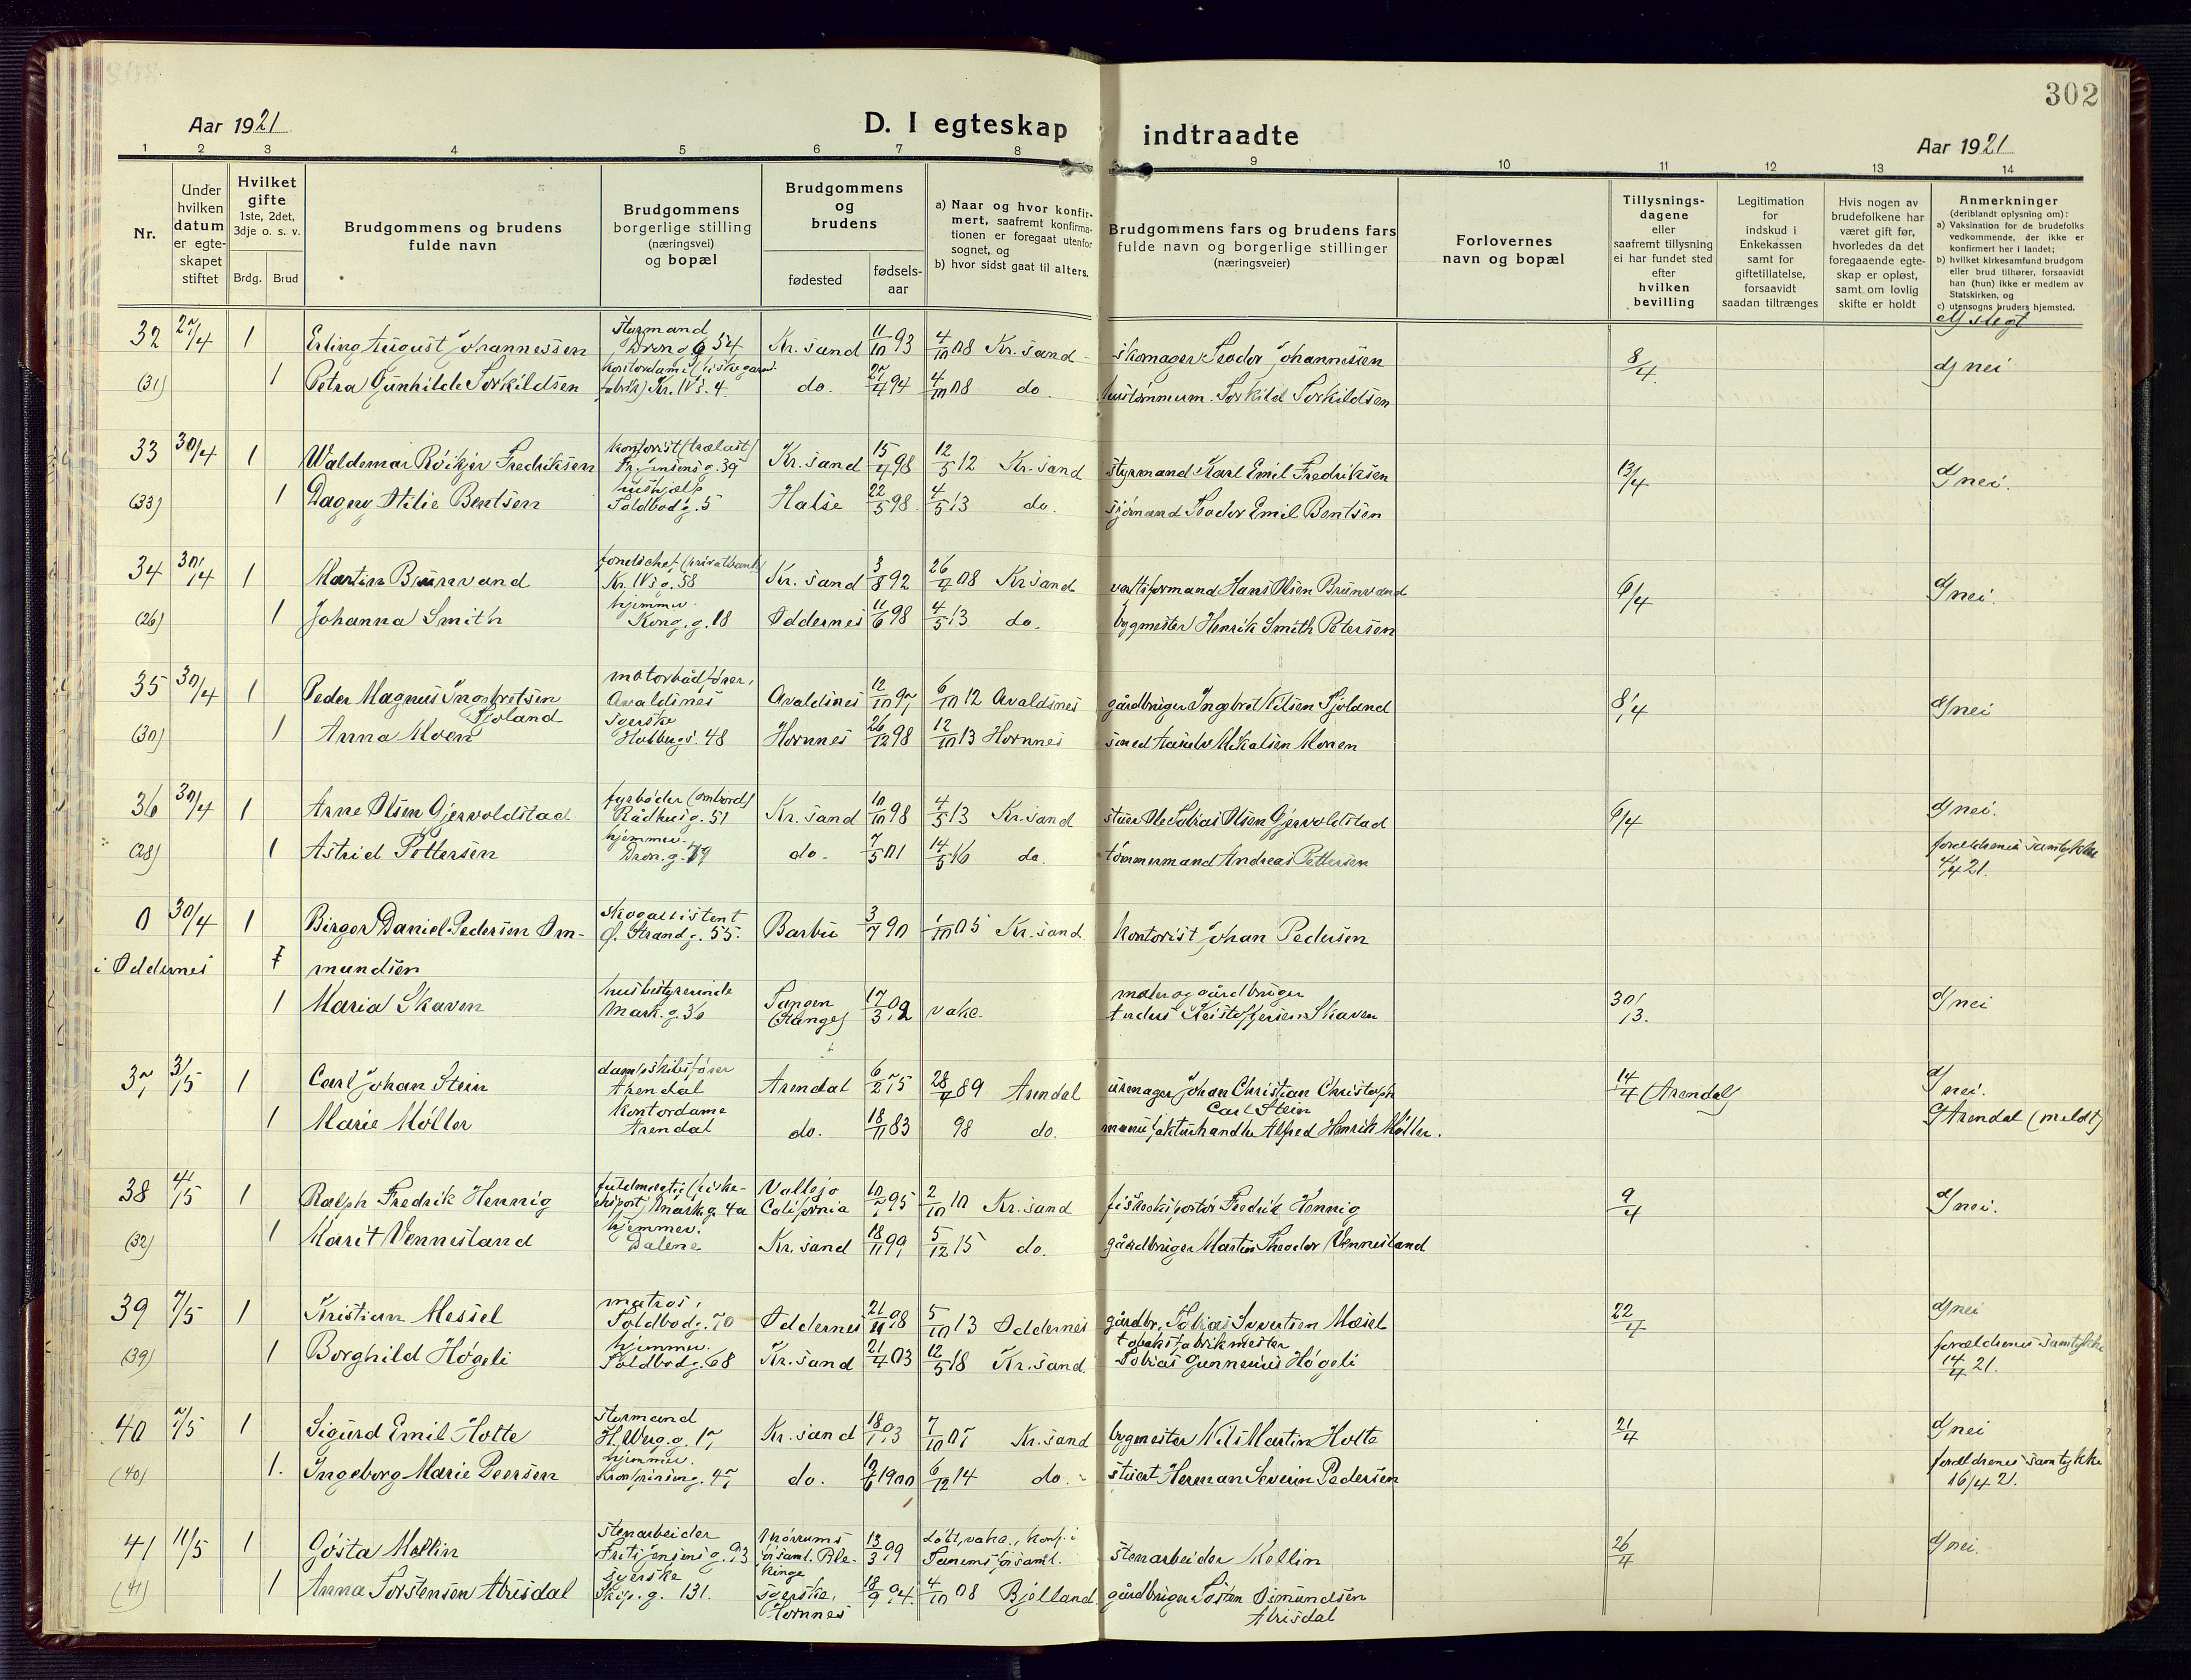 302
Aar 1921
D. I egteskap
indtraadte
Aar 1921
1 2 3 4 5 6 7 8 9 10 11 12 13 14
Nr.
Under hvilken datum er egteskapet stiftet
Hvilket gifte 1ste, 2det, 3dje o. s. v.
Brdg. Brud
Brudgommens og brudens fulde navn
Brudgommens borgerlige stilling (næringsvei) og bopæl
Brudgommens og brudens
fødested
fødsels-aar
a) Naar og hvor konfirmert, saafremt konfirmationen er foregaat utenfor sognet, og
b) hvor sidst gaat til alters.
Brudgommens fars og brudens fars fulde navn og borgerlige stillinger (næringsveier)
Forlovernes navn og bopæl
Tillysnings-dagene eller saafremt tillysning ei har fundet sted efter hvilken bevilling
Legitimation for indskud i Enkekassen samt for giftetillatelse, forsaavidt saadan tiltrænges
Hvis nogen av brudefolkene har været gift før, hvorledes da det foregaaende egteskap er opløst, samt om lovlig skifte er holdt
Anmerkninger
(deriblandt oplysning om):
a) Vaksination for de brudefolks vedkommende, der ikke er konfirmert her i landet;
b) hvilket kirkesamfund brudgom eller brud tilhører, forsaavidt han (hun) ikke er medlem av Statskirken, og
c) utensogns bruders hjemsted.
d) slegt
32 27/4 1 Erling August Johannessen styrmand Dron.g. 54 Kr.sand 11/10 93 4/10 08 Kr.sand skomager Teodor Johannessen 8/4 d) nei
(31) 1 Petra Gunhilde Torkildsen Kr. IVs. 4. do. 27/4 94 4/10 08 do. Torkild Torkildsen
33 30/4 1 Waldemar Röikjer Fredriksen kontorist (trælast) Fr. Jensens g. 39 Kr.sand 15/4 98 12/5 12 Kr.sand styrmand Karl Emil Fredriksen 13/4 d) nei.
(33) 1 Dagny Otilie Bentsen hushjælp Toldbodg. 5 Halse 22/5 98 4/5 13 do. sjömand Teodor Emil Bentsen
34 30/4 1 Martin Brunvand fondschef (privatbank) Kr. IVs g. 58 Kr.sand 3/8 92 26/4 08 Kr.sand verftsformand Hans Olsen Brunvand 6/4 d) nei.
(26) 1 Johanna Smith hjemmev. Kong. g. 18 Oddernes 11/6 98 4/5 13 do. bygmester Henrik Smith Petersen
35 30/4 1 Peder Magnus Ingebretsen Sjoland motorbådfører, Avaldsnes Avaldsnes 12/10 97 6/10 12 Avaldsnes gårdbruger Ingebret Nilsen Sjoland 8/4 d) nei
(30) 1 Anna Moen syerske Holbergs. 48 Hornnes 26/12 98 12/10 13 Hornnes smed Mikalsen Monen
36 30/4 1 Arne Olsen Gjervoldstad fyrbøder (ombord) Rådhusg. 51 Kr.sand 10/10 98 4/5 13 Kr.sand stuer Ole Tobias Olsen Gjervoldstad 6/4 d) nei.
(28) 1 Astrid Pettersen hjemmev. Dron.g. 79 do. 7/5 01 14/5 16 do. tömmermand Andreas Pettersen forældrenes samtykke 4/4 21.
0 30/4 1 Birger Daniel Pedersen Om- skogassistent Ø. Strandg. 55. Barbu 3/7 90 1/10 05 Kr.sand kontorist Johan Pedersen
i Oddernes mundsen
1 Maria Skaven husbestyrerinde Mark.g. 36 Tangen (Stange) 17/3 92 vake. maler og gårdbruger Anders Kristoffersen Skaven 30/3. d) nei
37 3/5 1 Carl Johan Stein dampskibsfører Arendal Arendal 6/2 75 28/4 89 Arendal urmager Johan Christian Christoph Carl Stein 14/4 (Arendal) d) nei.
1 Marie Möller kontordame Arendal do. 18/11 83 98 do. manufakturhandler Alfred Henrik Möller. c) Arendal (meldt)
38 4/5 1 Ralph Fredrik Hennig fuldmægtig (fiske-eksport) Mark.g. 4a Vallejo California 10/7 95 2/10 10 Kr.sand fiskeeksportör Fredrik Hennig 9/4 d) nei.
(32) 1 Marit Vennesland hjemmev. Dalene Kr.sand 18/11 99 5/12 15 do. gårdbruger Martin Theodor Vennesland
39 7/5 1 Kristian Messel matros, Toldbodg. 70 Oddernes 21/11 98 5/10 13 Oddernes gårdbr. Tobias Sivertsen Mæsel 22/4 d) nei
(39) 1 Borghild Høgeli hjemmev. Toldbodg. 68 Kr.sand 21/4 03 12/5 18 Kr.sand. tobaksfabrikmester Tobias Gunnenius Høgeli forældrenes samtykke 14/4 21.
40 7/5 1 Sigurd Emil Holte styrmand H. Werg. g. 17 Kr.sand 18/1 93 7/10 07 Kr.sand bygmester Nils Martin Holte 21/4 d) nei
(40) 1. Ingeborg Marie Peersen hjemmev. Kronprinseng. 47 do. 10/6 1900 6/12 14 do. stuert Herman Severin Pedersen forældrenes samtykke 16/4 21.
41 11/5 1 Gösta Mellin stenarbeider Fritjensensg. 93 Mörrums församl. Blekinge 13/3 99 døbt, vake., konf. i Tanums församl. stenarbeider Mellin 26/4 d) nei.
(41) 1 Anna Torstensen Abisdal syerske Skip. g. 131. syerske, Hornnes 18/9 94. 4/10 08 Bjelland. gårdbruger Tosten Osmundsen Abisdal